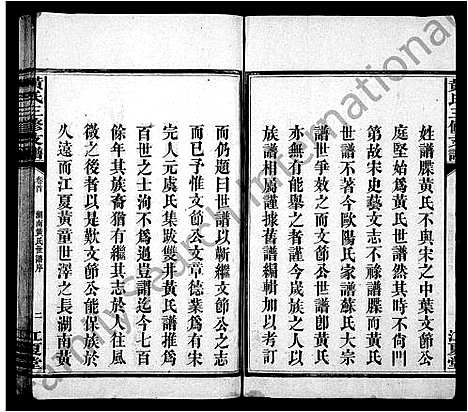 黃氏三修支譜
姓譜牒黃氏不與宋之中葉文節公
庭堅始為黃氏世譜然其時不尚譜
第故宋史藝文志不祿譜牒而黃氏
世譜不著今歐陽氏家譜蘇氏大宗
譜世爭效之而文節公世譜卽黃氏
亦無有能舉之者謹今成族之人以
各相屬謹據舊譜編輯加以考訂
而仍題曰世譜以斬繼文節公之志
而已予惟文節公文章德業為有宋
完人元虞氏集跋雙井黃氏譜推為
百世之士洵不為過豈謂迄今七百
餘年其族裔猶有繼其志於人往風
微之後者是以歎文節公能保族於
久遠而江夏黃童世澤之長湖南黃
黃氏三修支譜
卷首
湖南黃氏世譜序
二
江夏堂
江夏堂
FamilySearch International